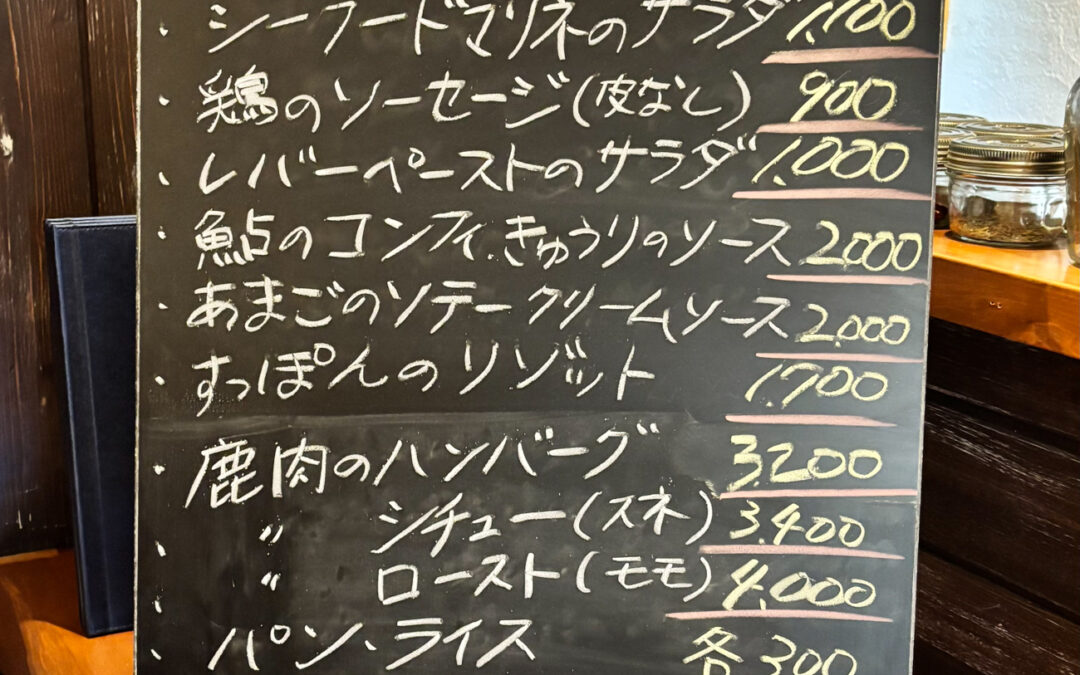 ・シーフードマリネのサラダ 1,100
・鶏のソーセージ(皮なし) 900
・レバーペーストのサラダ 1,000
・鮎のコンフィ、きゅうりのソース 2,000
・あまごのソテークリームソース 2,000
・すっぽんのリゾット 1,700
・鹿肉のハンバーグ 3,200
・〃 シチュー(スネ) 3,400
・〃 ロースト(モモ) 4,000
・パン、ライス 各300